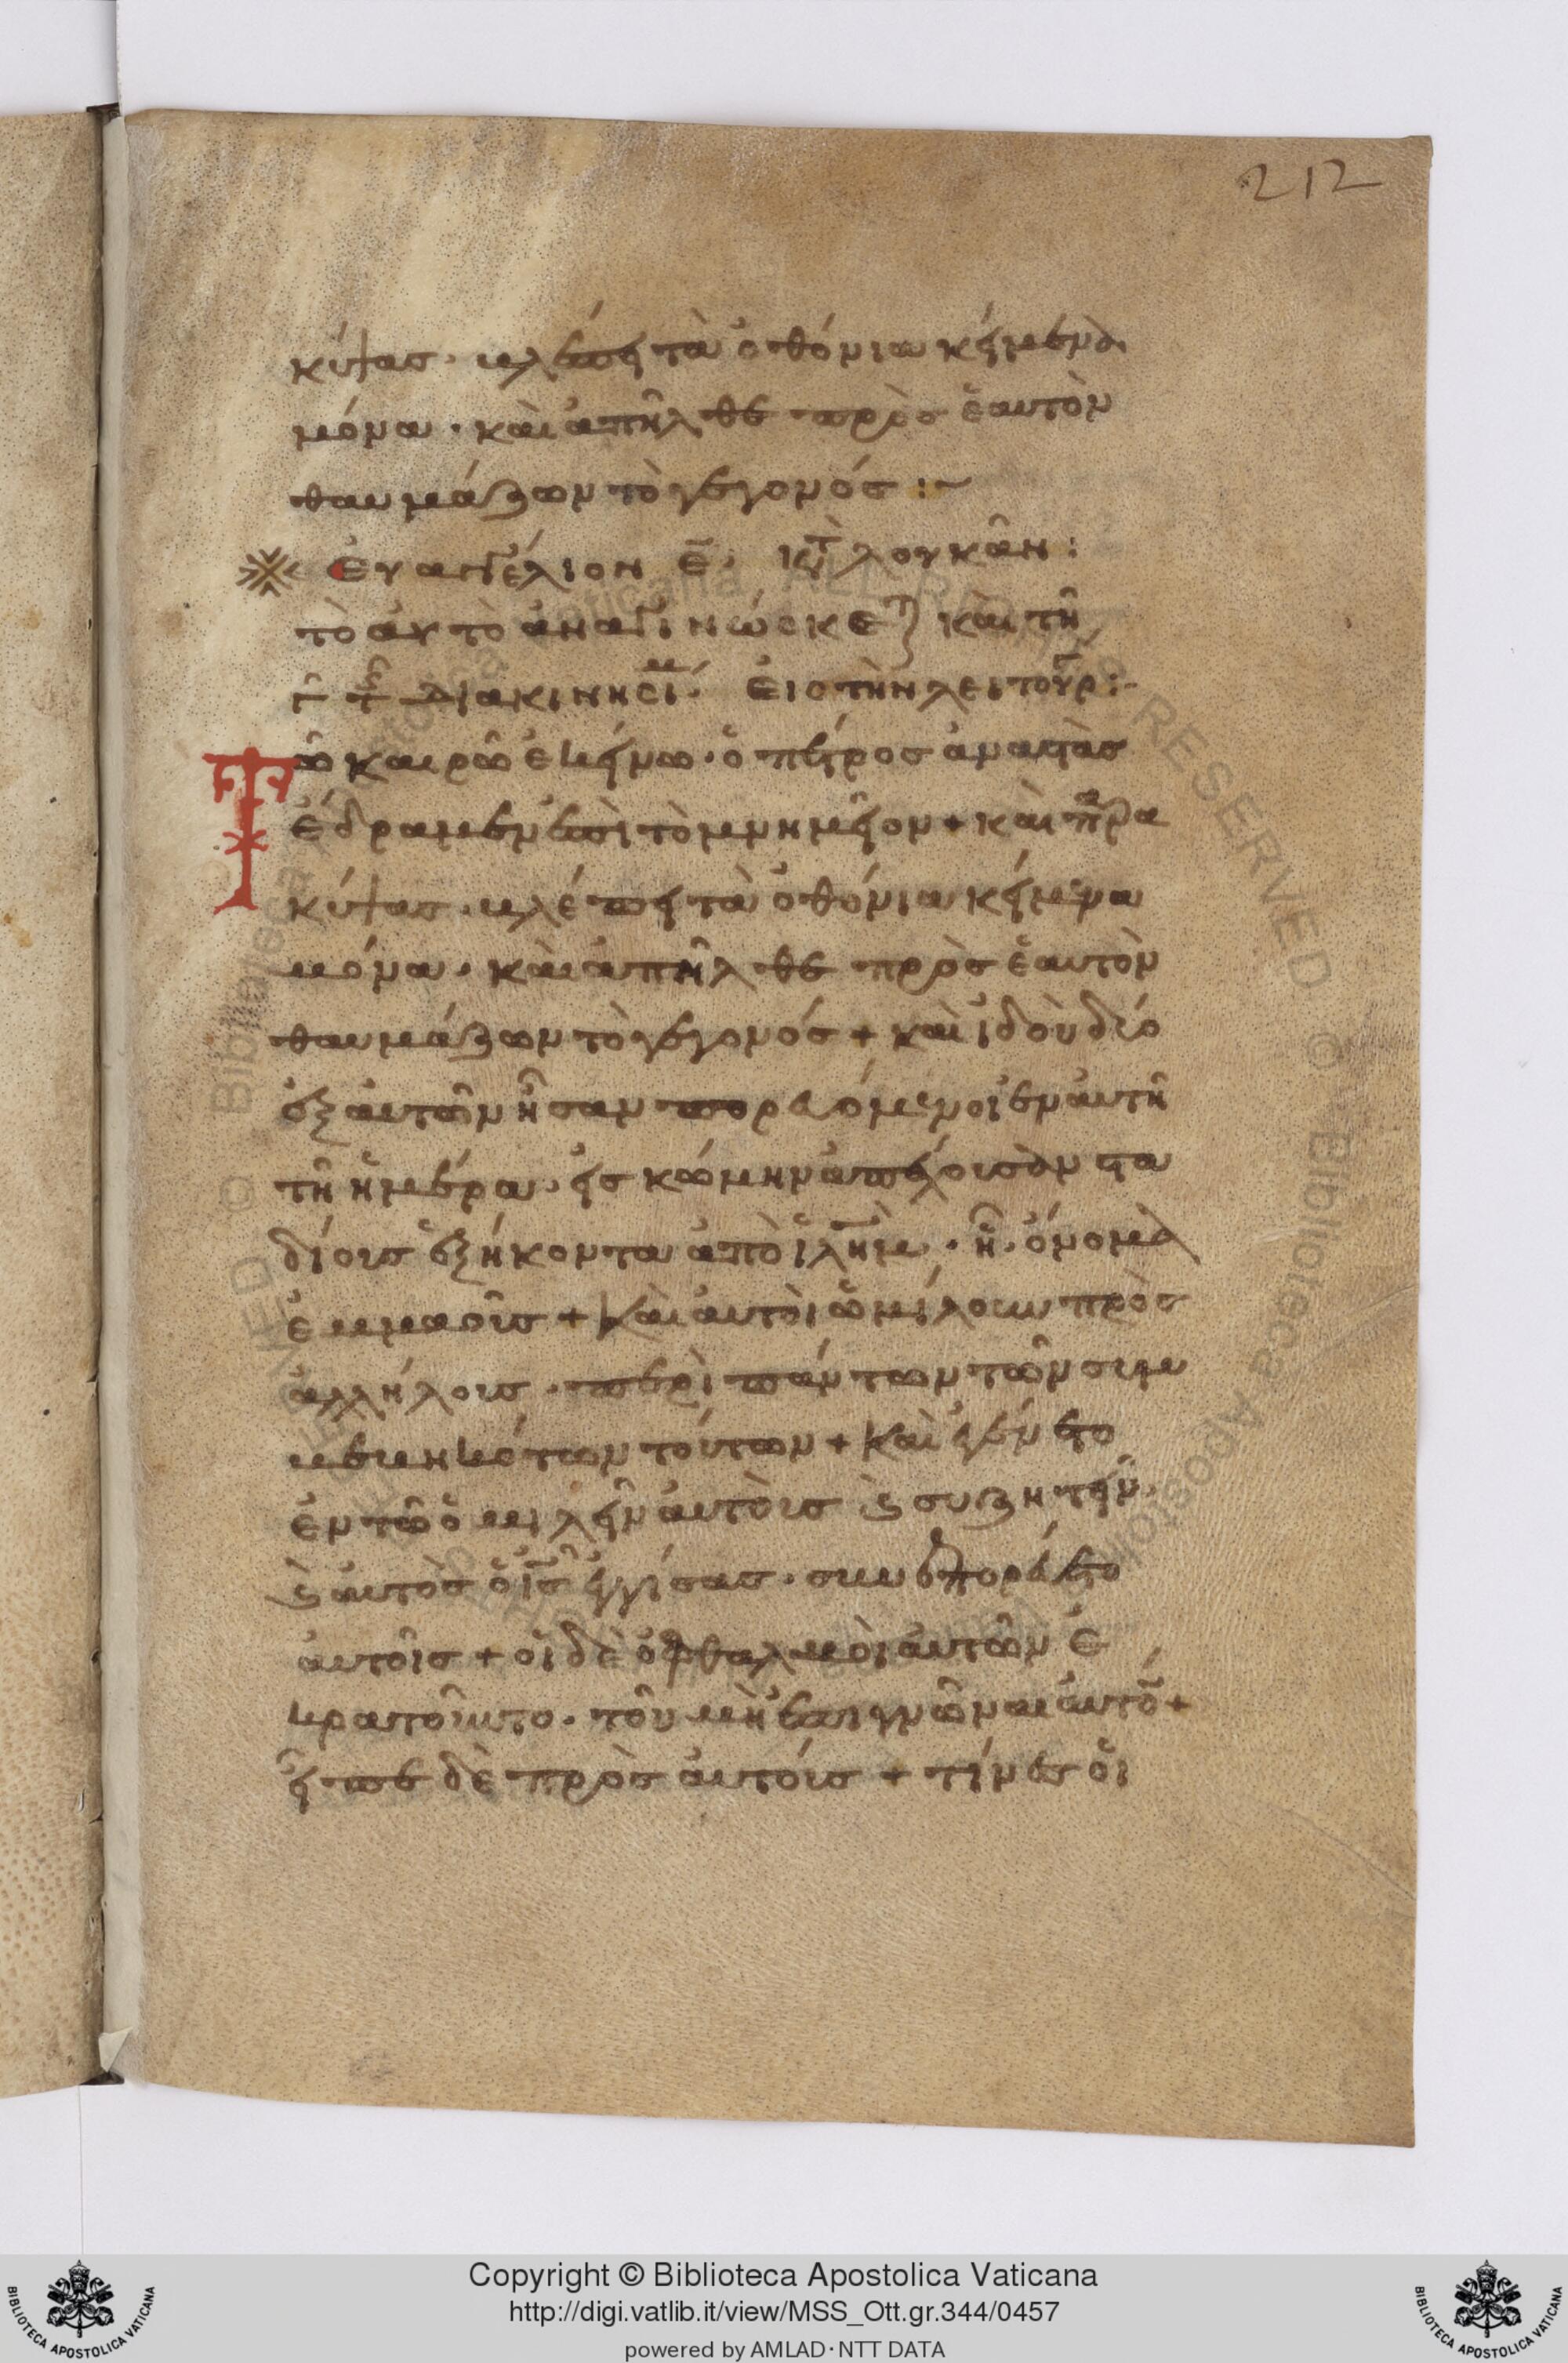 212
κύψας· βλέπει τὰ ὀθόνια κείμενα
μόνα· καὶ ἀπῆλθε πρὸς ἑαυτὸν
θαυμάζων τὸ γεγονός :~
εὐαγγέλιον ε̄· κτ̀ λουκᾶν :
τὸ αὐτὸ ἀναγινώσκετ καὶ τῆ
γ̄ τῆς διακινησί· εἰς τὴν λειτουρ :-
Τῶ καιρῶ ἐκείνω· ὁ πέτρος ἀναστὰς
ἔδραμεν ἐπὶ τὸ μνημεῖον + καὶ πρα
κύψας· βλέπει τὰ ὀθόνια κείμενα
μόνα· καὶ ἀπῆλθε πρὸς ἑαυτὸν
θαυμάζων τὸ γεγονός + καὶ ἰδοὺ δύο
ἐξ αὐτῶν ἦσαν πορευόμενοι ἐν αὐτῆ
τῆ ἡμέρα· εἰς κώμην ἀπέχουσαν στα
δίους ἑξήκοντα ἀπὸ ἱλῆμ· ἧ ὄνομα
ἐμμαοῦς + καὶ αὐτοὶ ὡμίλουν πρὸς
ἀλλήλους· περὶ πάντων τῶν συμ
βεβηκότων τούτων + καὶ ἐγένετο
ἐν τῶ ὁμιλεῖν αὐτοὺς ϗ συζητεῖν·
ϗ αὐτὸς ὁ ι̅ς̅ ἐγγίσας· συνεπορεύετο
αὐτοῖς + οἱ δὲ ὀφθαλμοὶ αὐτῶν ἐ
κρατοῦντο· τοῦ μὴ ἐπιγνῶναι αὐτό +
εἶπε δὲ πρὸς αὐτούς + τίνες οἱ
Copyright © Biblioteca Apostolica Vaticana
http://digi.vatlib.it/view/MSS_Ott.gr.344/0457
powered by AMLAD · NTT DATA
BIBLIOTECA APOSTOLICA VATICANA
BIBLIOTECA APOSTOLICA VATICANA